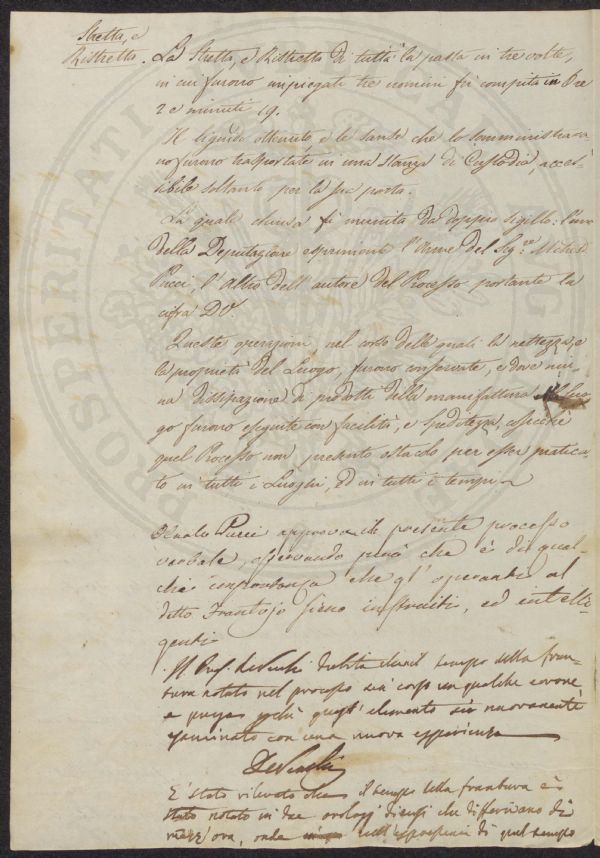 Stretta, e
Ristretta. La Stretta, e Ristretta di tutta la pasta in tre volte,
in cui furono impiegati tre uomini fù compita in Ore
2 e minuti 19.
Il liquido ottenuto, e le sanse che lo somministraro-
no furono trasportate in una Stanza di Custodia, acces-
sibile soltanto per la sua porta.
La quale chiusa fù munita da doppio sigillo: l'uno
della Deputazione esprimente l'Arme del Sig.re
Pucci, l'altro dell'autore del Processo portante la
cifra
Queste operazioni, nel corso delle quali la nettezza, e
la proprietà del Luogo, furono conservate, e dove niu-
na dissipazione di prodotti della manifattura luo-
go furono eseguite con facilità, e speditezza, cosicchè
quel Processo non presentò ostacolo per esser pratica-
to in tutti i Luoghi, ed in tutti i tempi
Pucci approva il presente processo
verbale, osservando però che è di qual-
che importanza che gl'operanti al
detto Frantojo sieno instruiti, ed intelli-
genti
Il Prof. dubita che il tempo della fran-
tura notato nel processo sia corso in qualche errore
e prega perchè quest'elemento sia nuovamente
esaminato con una nuova esperienza
E' stato rilevato che il tempo della frantura è
stato notato in due orologi diversi che differivano di
mezz'ora, onde di quel tempo